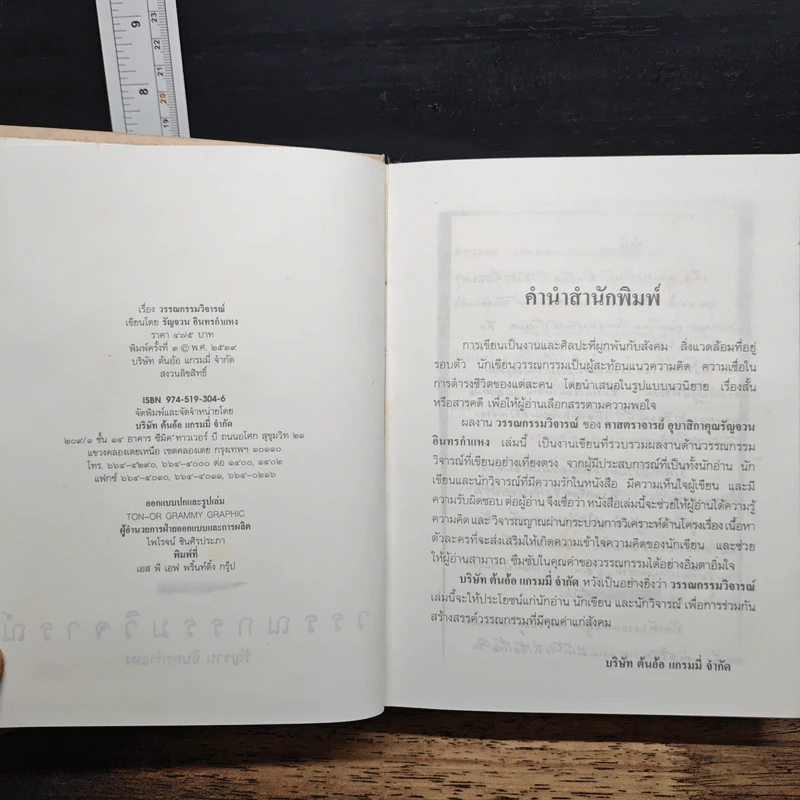 9
8
23
22
21
20
19
เรื่อง วรรณกรรมวิจารณ์
เขียนโดย รัญจวน อินทรกำแหง
ราคา ๔๗๕ บาท
พิมพ์ครั้งที่ ๓ © พ.ศ. ๒๕๓๙
บริษัท ต้นอ้อ แกรมมี่ จำกัด
สงวนลิขสิทธิ์
ISBN 974-519-304-6
จัดพิมพ์และจัดจำหน่ายโดย
บริษัท ต้นอ้อ แกรมมี่ จำกัด
๒๐๙/๑ ชั้น ๑๔ อาคาร ซีมิค ทาวเวอร์ บี ถนนอโศก สุขุมวิท ๒๑
แขวงคลองเตยเหนือ เขตคลองเตย กรุงเทพฯ ๑๐๑๑๐
โทร. ๖๖๔-๔๒๙๐, ๖๖๔-๔๐๐๐ ต่อ ๑๔๐๐, ๑๔๐๒
แฟกซ์ ๖๖๔-๔๐๑๐, ๖๖๔-๔๐๑๑, ๖๖๔-๐๒๑๖
ออกแบบปกและรูปเล่ม
TON-OR GRAMMY GRAPHIC
ผู้อำนวยการฝ่ายออกแบบและการผลิต
ไพโรจน์ ชินศิรประภา
พิมพ์ที่
เอส พี เอฟ พริ้นท์ติ้ง กรุ๊ป
วรรณกรรมวิจารณ์
รัญจวน อินทรกำแหง
คำนำสำนักพิมพ์
การเขียนเป็นงานและศิลปะที่ผูกพันกับสังคม สิ่งแวดล้อมที่อยู่
รอบตัว นักเขียนวรรณกรรมเป็นผู้สะท้อนแนวความคิด ความเชื่อใน
การดำรงชีวิตของแต่ละคน โดยนำเสนอในรูปแบบนวนิยาย เรื่องสั้น
หรือสารคดี เพื่อให้ผู้อ่านเลือกสรรตามความพอใจ
ผลงาน วรรณกรรมวิจารณ์ ของ ศาสตราจารย์ อุบาสิกาคุณรัญจวน
อินทรกำแหง เล่มนี้ เป็นงานเขียนที่รวบรวมผลงานด้านวรรณกรรม
วิจารณ์ที่เขียนอย่างเที่ยงตรง จากผู้มีประสบการณ์ที่เป็นทั้งนักอ่าน นัก
เขียนและนักวิจารณ์ที่มีความรักในหนังสือ มีความเห็นใจผู้เขียน และมี
ความรับผิดชอบ ต่อผู้อ่าน จึงเชื่อว่า หนังสือเล่มนี้จะช่วยให้ผู้อ่านได้ความรู้
ความคิด และ วิจารณญาณผ่านกระบวนการวิเคราะห์ด้านโครงเรื่อง เนื้อหา
ตัวละครที่จะส่งเสริมให้เกิดความเข้าใจความคิดของนักเขียน และช่วย
ให้ผู้อ่านสามารถ ซึมซับในคุณค่าของวรรณกรรมได้อย่างอิ่มตาอิ่มใจ
บริษัท ต้นอ้อ แกรมมี่ จำกัด หวังเป็นอย่างยิ่งว่า วรรณกรรมวิจารณ์
เล่มนี้จะให้ประโยชน์แก่นักอ่าน นักเขียน และนักวิจารณ์ เพื่อการร่วมกัน
สร้างสรรค์วรรณกรรมที่มีคุณค่าแก่สังคม
บริษัท ต้นอ้อ แกรมมี่ จำกัด